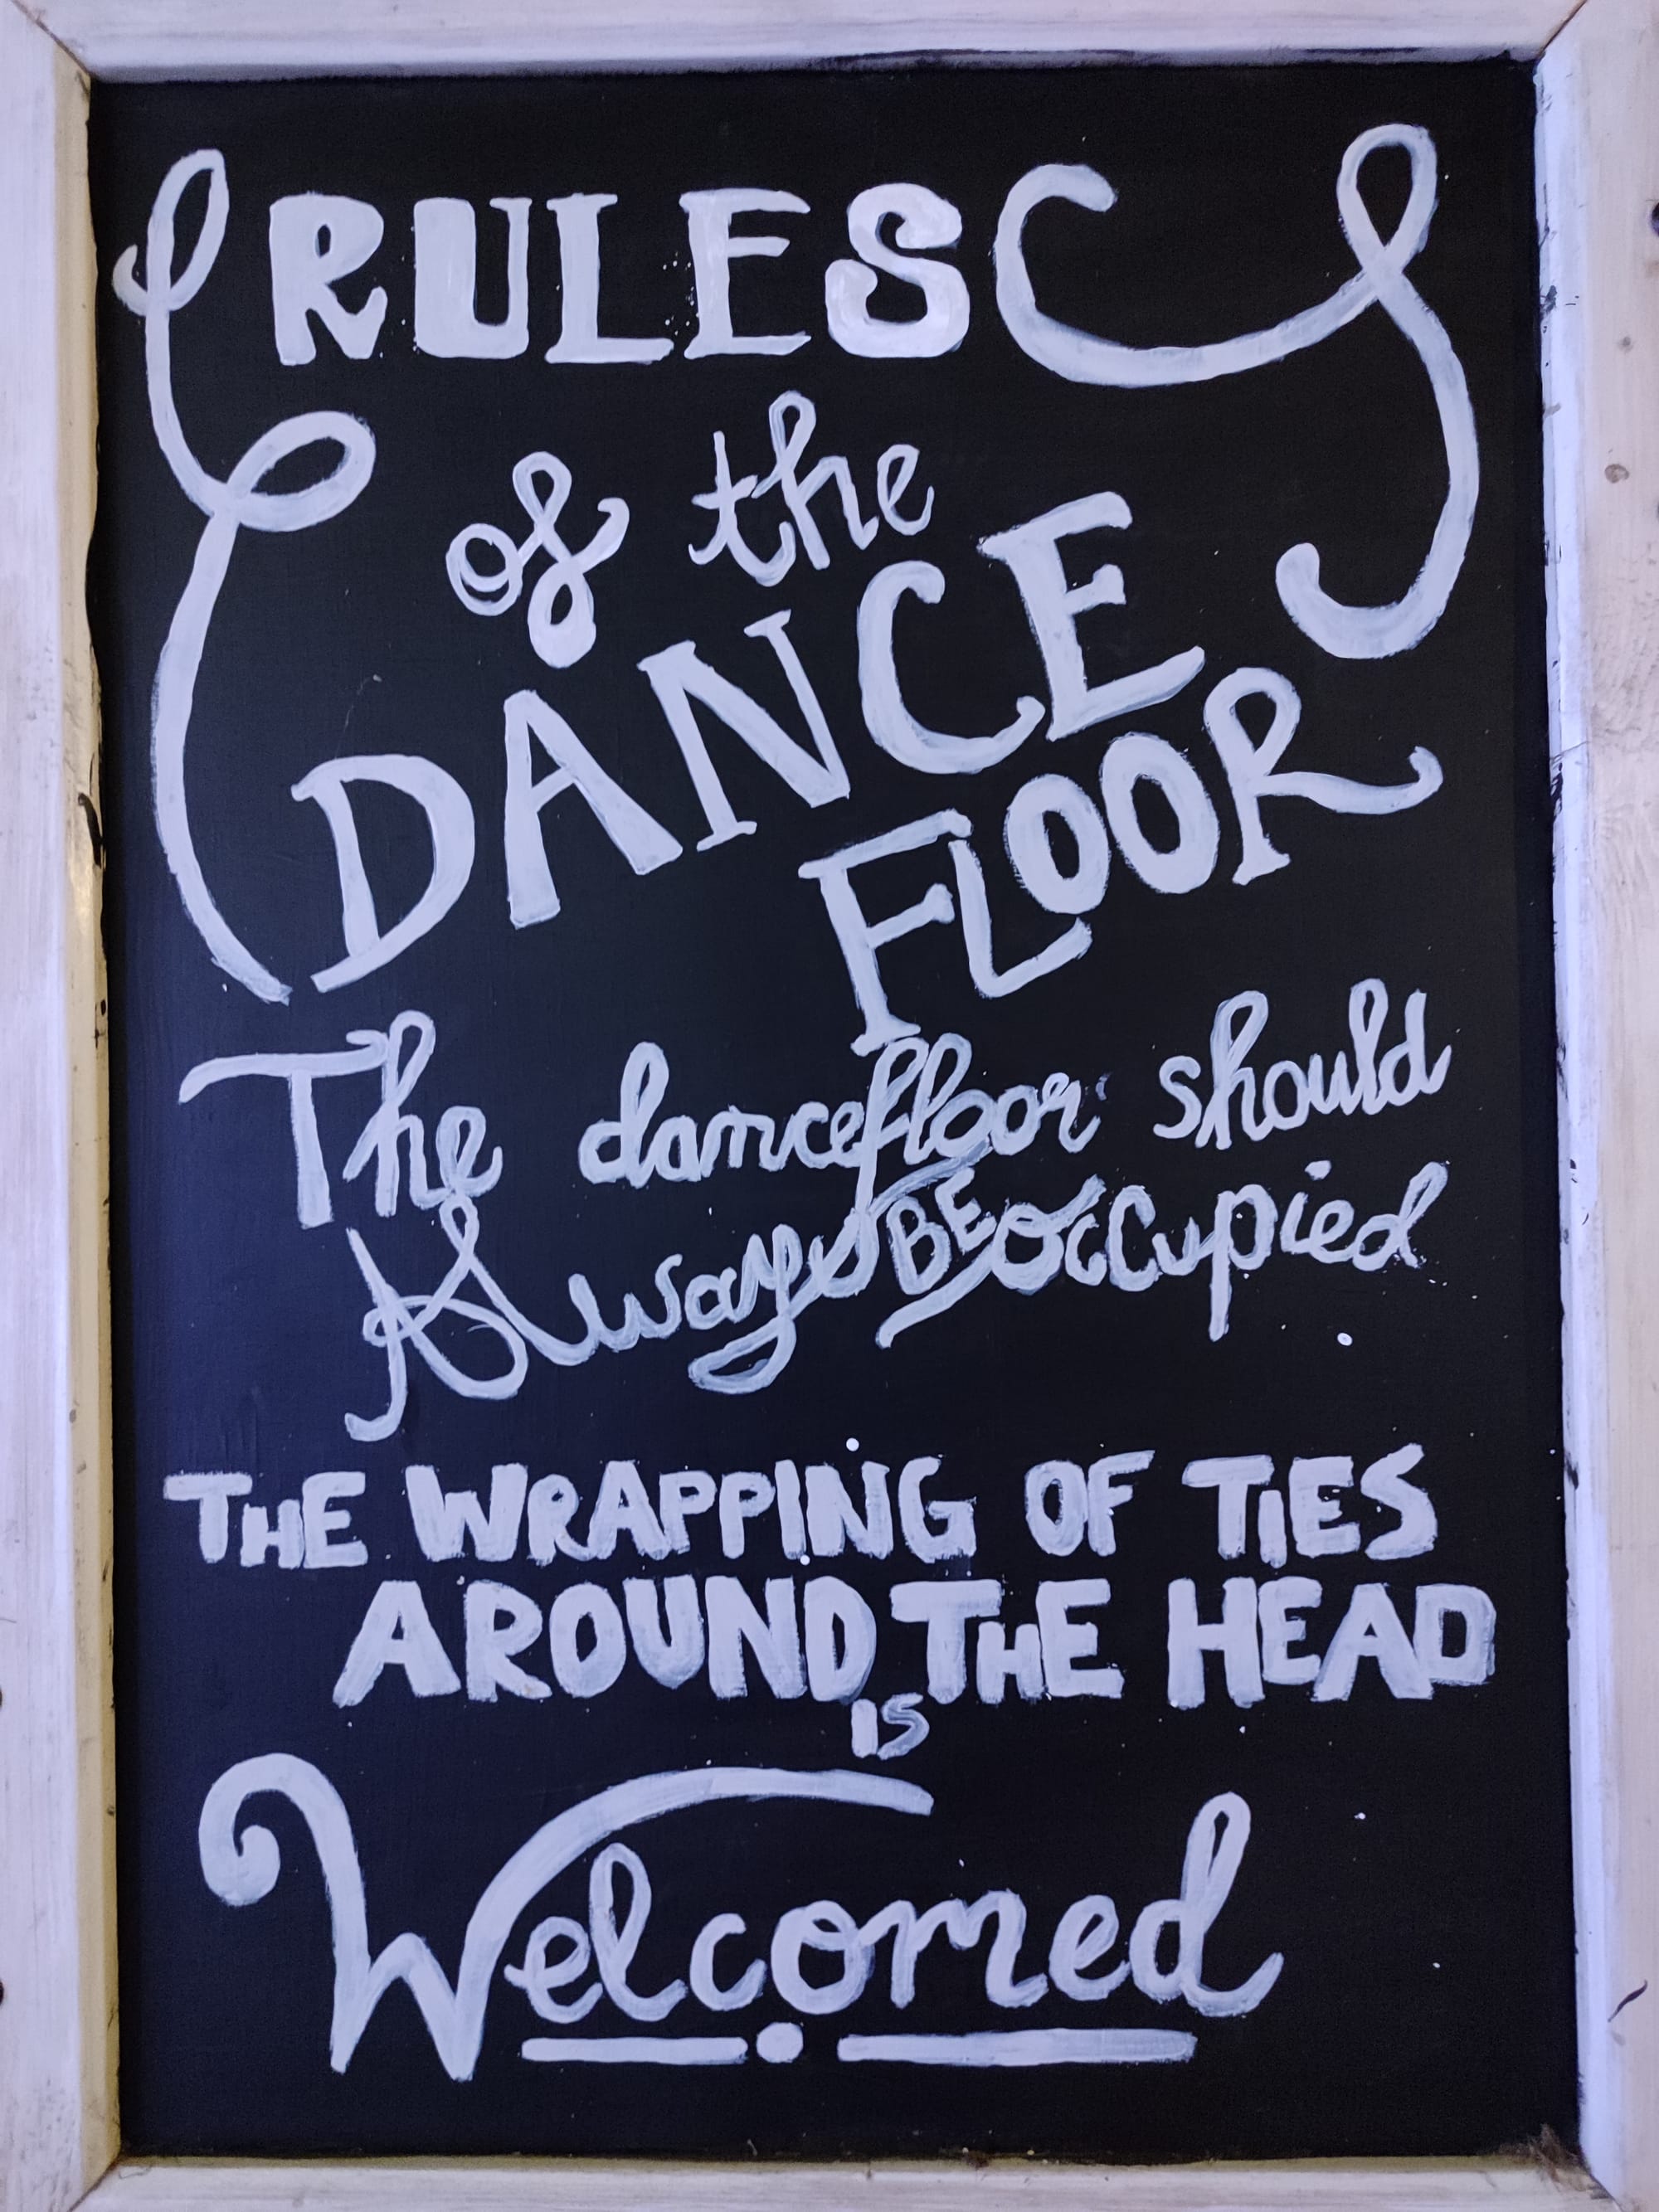 RULES
of the
DANCE
FLOOR
The dancefloor should
Always BE occupied
THE WRAPPING OF TIES
AROUND THE HEAD
IS
Welcomed